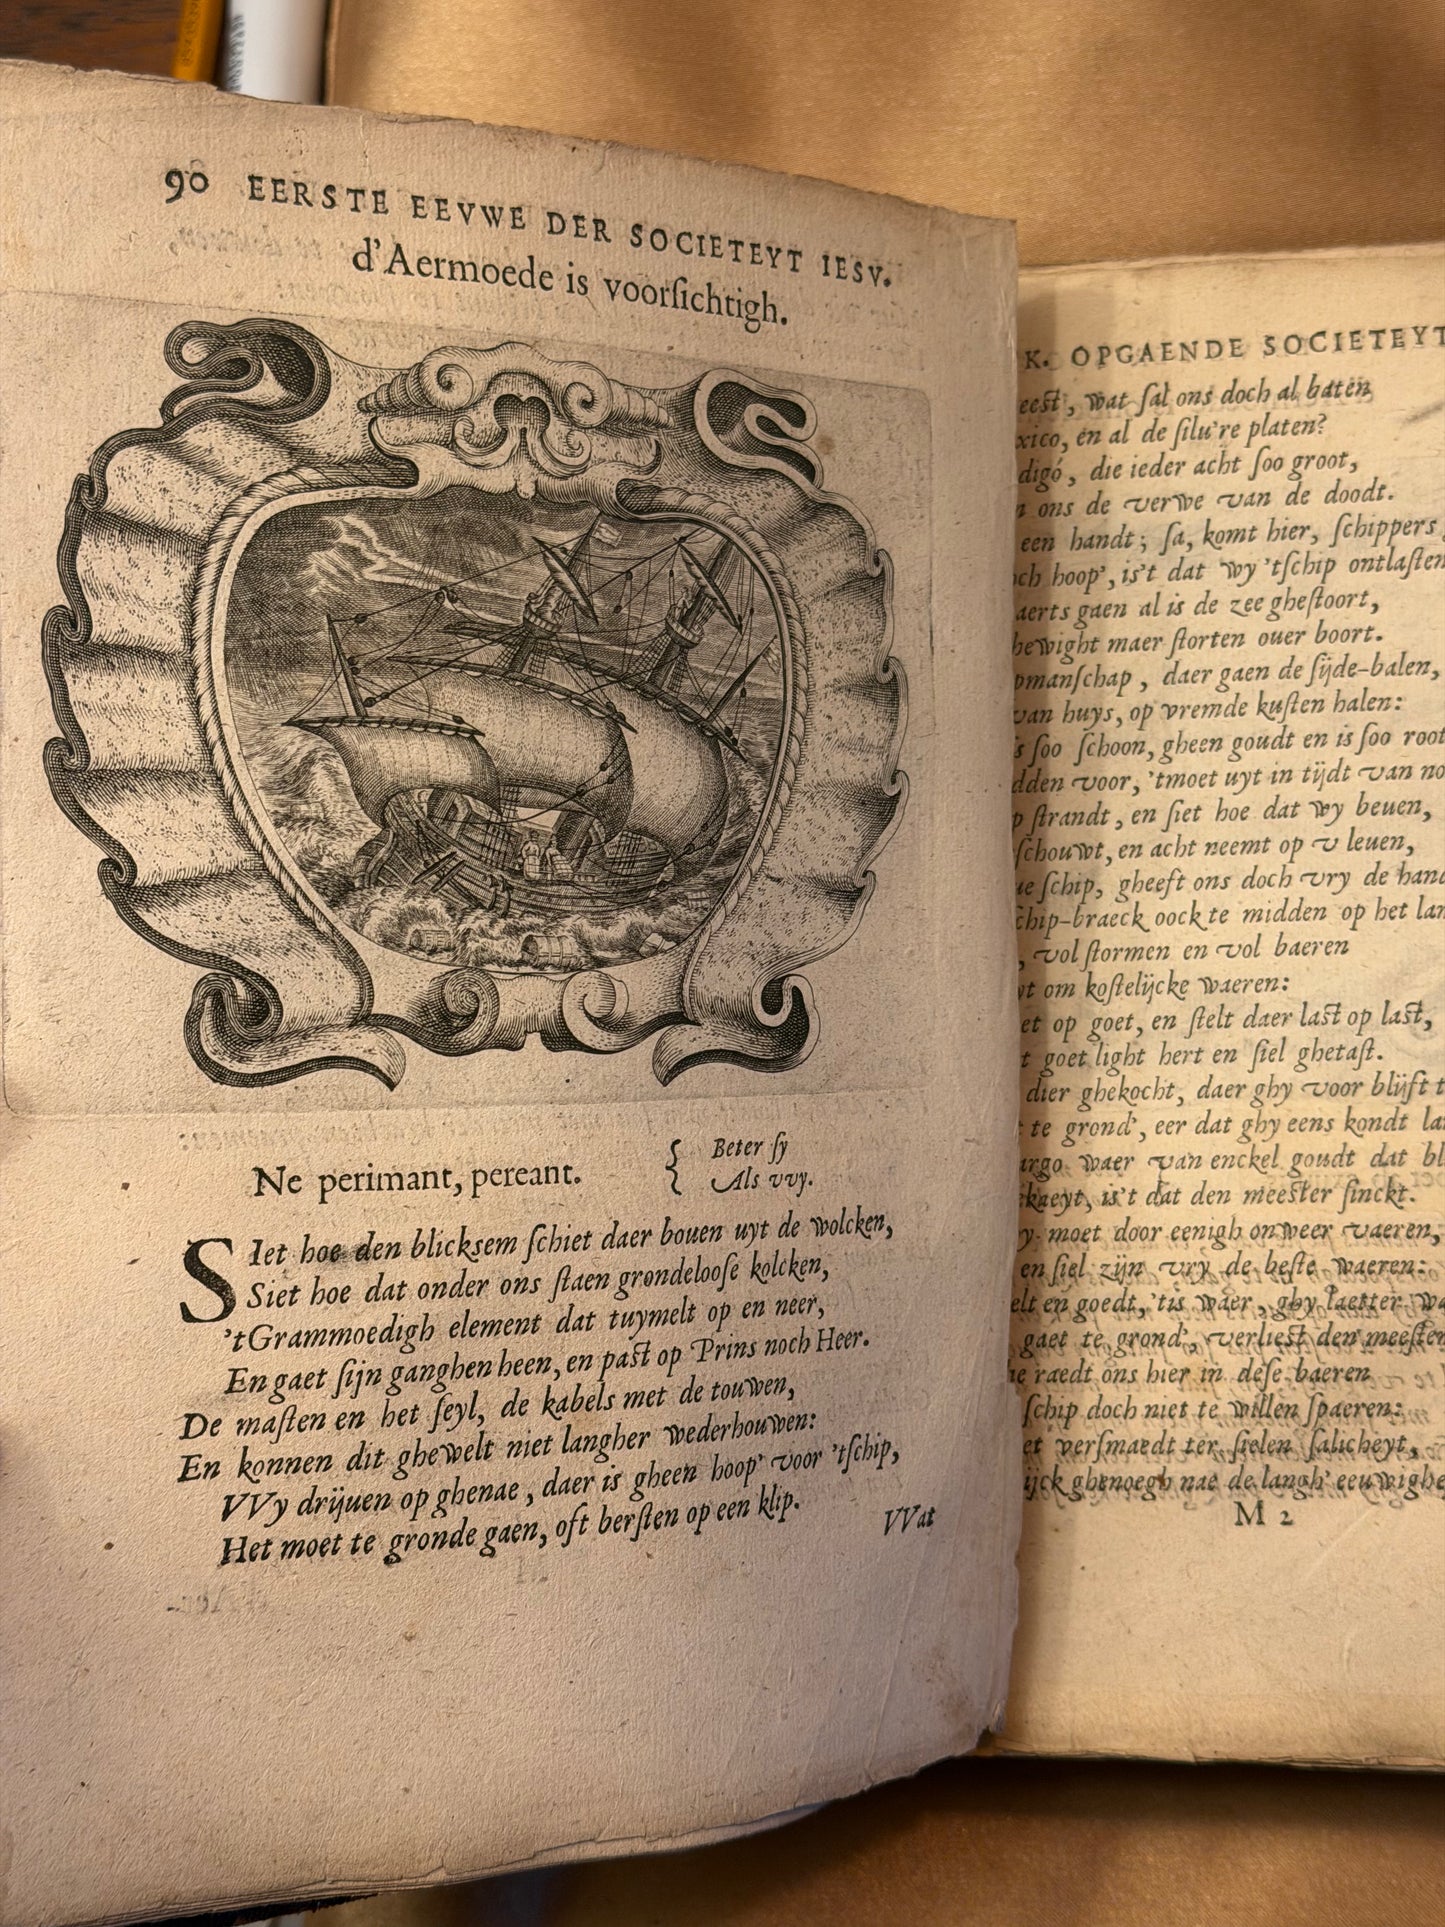 90 EERSTE EEVWE DER SOCIETEYT IESV.
d'Aermoede is voorſichtigh.
Ne perimant, pereant.
Beter ſy
Als vvy.
SIet hoe den blickſem ſchiet daer bouen uyt de wolcken,
Siet hoe dat onder ons ſtaen grondelooſe kolcken,
'tGrammoedigh element dat tuymelt op en neer,
En gaet ſijn ganghen heen, en paſt op Prins noch Heer.
De maſten en het ſeyl, de kabels met de touwen,
En konnen dit ghewelt niet langher wederhouwen:
VVy drijuen op ghenae, daer is gheen hoop' voor 'tſchip,
Het moet te gronde gaen, oft berſten op een klip.
VVat
K. OPGAENDE SOCIETEYT
, wat ſal ons doch al baten
, en al de ſilu're platen?
, die ieder acht ſoo groot,
ons de verwe van de doodt.
een handt; ſa, komt hier, ſchippers
hoop', is't dat wy 'tſchip ontlaſten
gaen al is de zee gheſtoort,
maer ſtorten ouer boort.
, daer gaen de ſijde-balen,
van huys, op vremde kuſten halen:
ſoo ſchoon, gheen goudt en is ſoo root
voor, 'tmoet uyt in tijdt van
ſtrandt, en ſiet hoe dat wy beuen,
, en acht neemt op u leuen,
ſchip, gheeft ons doch vry de
oock te midden op het
, vol ſtormen en vol baeren
om koſtelijcke waeren:
op goet, en ſtelt daer laſt op laſt,
goet light hert en ſiel ghetaſt.
dier ghekocht, daer ghy voor blijft
te grond', eer dat ghy eens kondt
waer van enckel goudt dat
, is't dat den meeſter ſinckt.
moet door eenigh onweer vaeren,
en ſiel zijn vry de beſte waeren:
en goedt, 'tis waer, ghy laetter
gaet te grond', verlieſt den meeſten
raedt ons hier in deſe baeren
ſchip doch niet te willen ſpaeren:
verſmaedt ter ſielen ſalicheyt,
ghenoegh nae de langh' eeuwighe
M 2